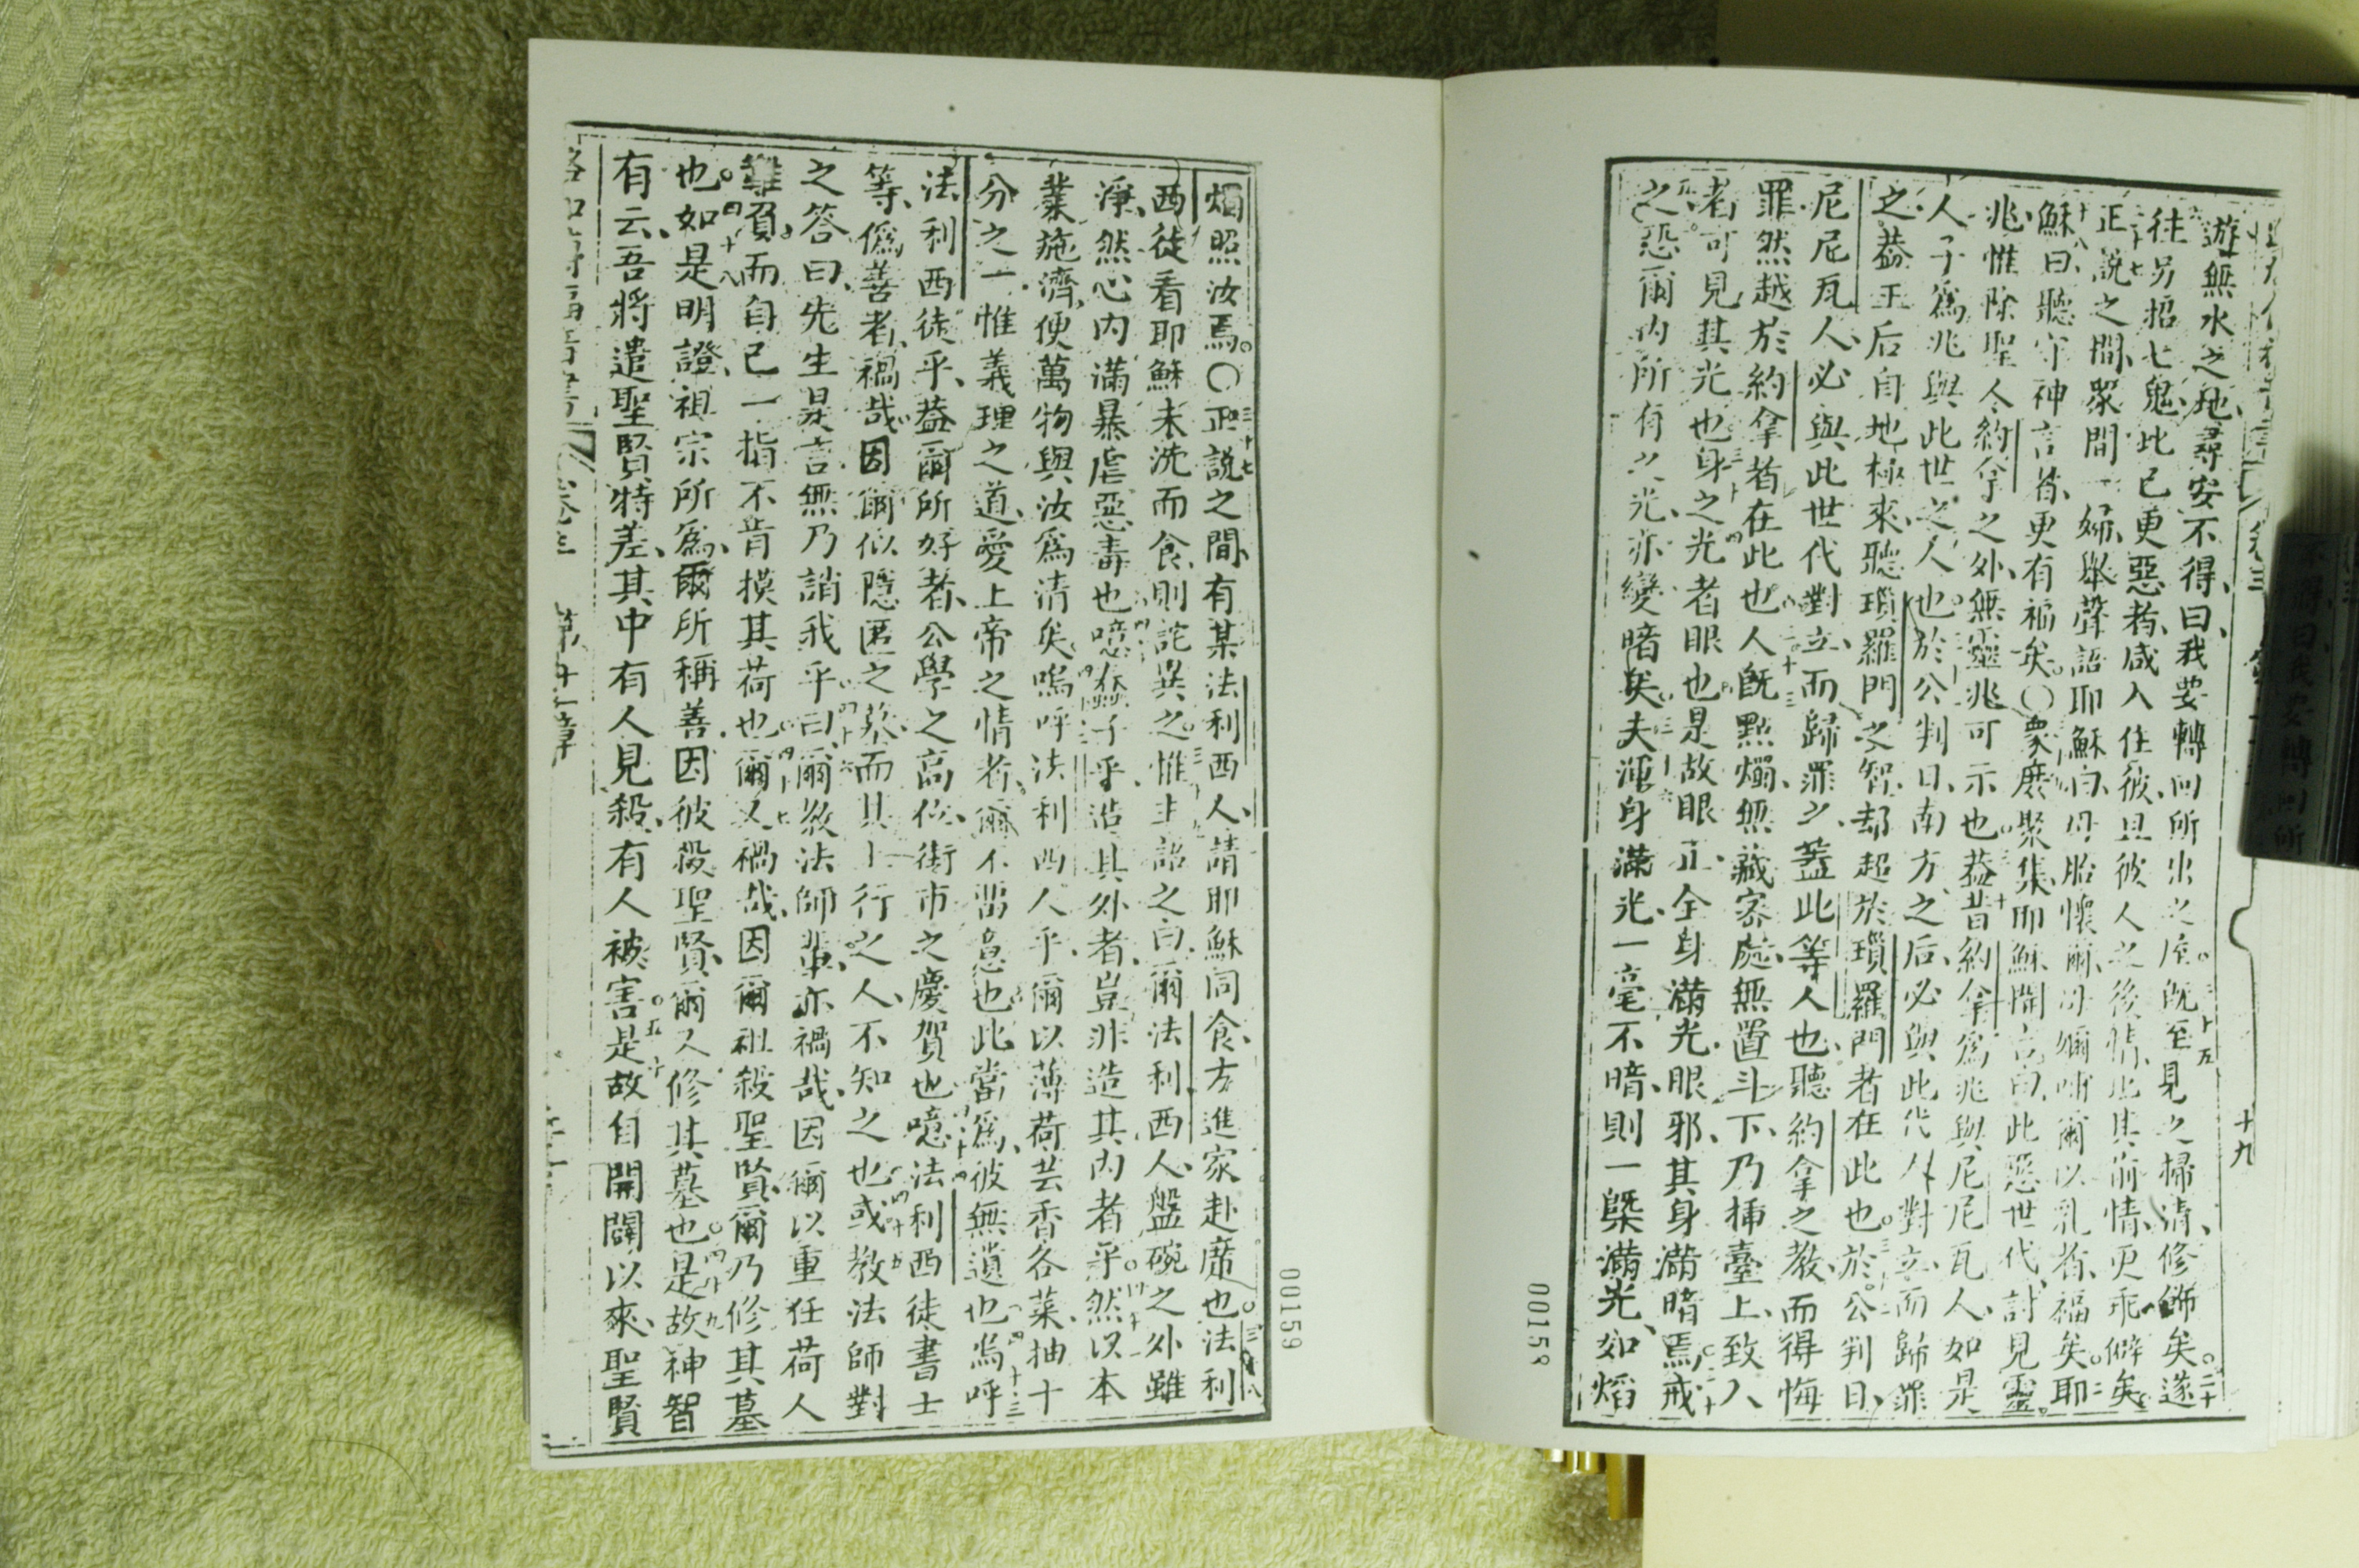 十九
遊無水之地、尋安不得、曰我要轉回所出之屋。既至見之掃清、修飾矣。遂
往另招七鬼、比已更惡者、咸入住彼、且彼人之後情、比其前情、更乖僻矣。
正說之間、眾間一婦、舉聲語耶穌曰、母胎懷爾、母嬭哺爾以乳者、福矣。耶
穌曰、聽守神言者、更有福矣。〇眾庶聚集、耶穌開言曰、此惡世代、討見靈
兆、惟除聖人約拿之外、無靈兆可示也。蓋昔約拿為兆與尼尼瓦人、如是
人子為兆與此世之人也。於公判日、南方之后、必與此代人對立、而歸罪
之。蓋王后自地極來、聽瑣羅門之智、却超於瑣羅門者在此也。於公判日、
尼尼瓦人、必與此世代對立、而歸罪之、蓋此等人也、聽約拿之教、而得悔
罪。然越於約拿者在此也。人既點燭、無藏密處、無置斗下、乃插臺上、致入
者可見其光也。身之光者眼也。是故眼正、全身滿光、眼邪、其身滿暗焉。戒
之、恐爾內所有之光、亦變暗矣。夫渾身滿光、一毫不暗、則一槩滿光、如熖
00158
燭照汝焉。〇正說之間、有某法利西人、請耶穌同食、方進家赴席也。法利
西徒看耶穌未洗而食、則詫異之。惟主謂之曰、爾法利西人、盤碗之外雖
淨、然心內滿暴虐惡毒也。噫蠢子乎、造其外者、豈非造其內者乎。然以本
業施濟、便萬物與汝為清矣。嗚呼法利西人乎、爾以薄荷芸香各菜、抽十
分之一、惟義理之道、愛上帝之情者、爾不留意也。此當為、彼無遺也。嗚呼
法利西徒乎、蓋爾所好者、公學之高位、街市之慶賀也。噫法利西徒書士
等、偽善者、禍哉。因爾似隱匿之墓、而其上行之人、不知之也。或教法師對
之答曰、先生是言、無乃誚我乎。曰、爾教法師輩、亦禍哉、因爾以重任荷人
難負、而自己一指不肯摸其荷也。爾又禍哉、因爾祖殺聖賢、爾乃修其墓
也。如是明證、祖宗所為、爾所稱善。因彼殺聖賢、爾又修其墓也。是故神智
有云、吾將遣聖賢特差、其中有人見殺、有人被害。是故自開闢以來、聖賢
卷三
00159